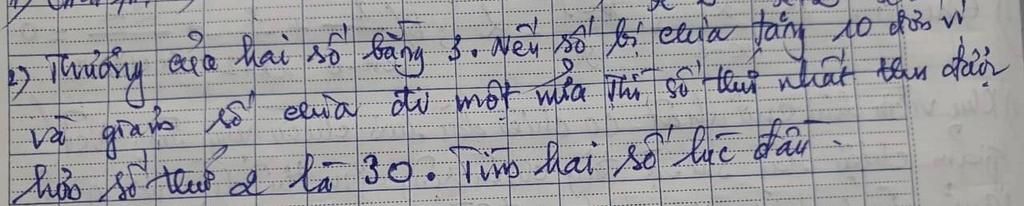 2) Thương của hai số bằng 3. Nếu số bị chia tăng 10 đơn vị
và giảm số chia đi một nửa thì số thứ nhất
hơn số thứ 2 là 30. Tìm hai số lúc đầu.